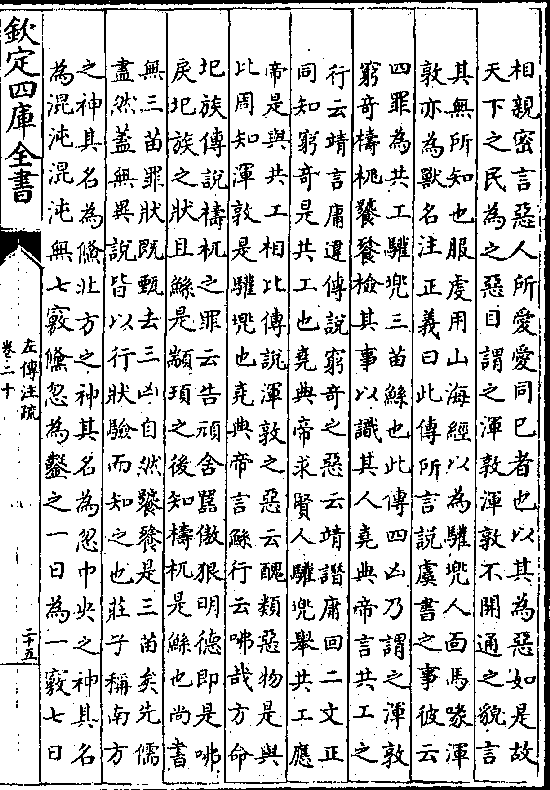 相親密言惡人所愛愛同己者也以其為惡如是故
天下之民為之惡目謂之渾敦渾敦不開通之貌言
其無所知也服虔用山海經以為驩兜人面馬喙渾
敦亦為獸名注正義曰此傳所言說虞書之事彼云
四罪為共工驩兜三苗鯀也此傳四凶乃謂之渾敦
窮奇檮杌饕餮檢其事以識其人堯典帝言共工之
行云靖言庸違傳說窮奇之惡云靖譖庸回二文正
同知窮奇是共工也堯典帝求賢人驩兜舉共工應
帝是與共工相比傳說渾敦之惡云醜類惡物是與
比周知渾敦是驩兜也堯典帝言鯀行云咈哉方命
圮族傳說檮杌之罪云告頑舍嚚傲狠明德即是咈
戾圮族之狀且鯀是顓頊之後知檮杌是鯀也尚書
無三苗罪狀既甄去三凶自然饕餮是三苗矣先儒
盡然蓋無異說皆以行狀驗而知之也莊子稱南方
之神其名為儵北方之神其名為忽中央之神其名
為混沌混沌無七竅儵忽為鑿之一日為一竅七日
欽定四庫全書
左傳注疏
卷二十
二十五